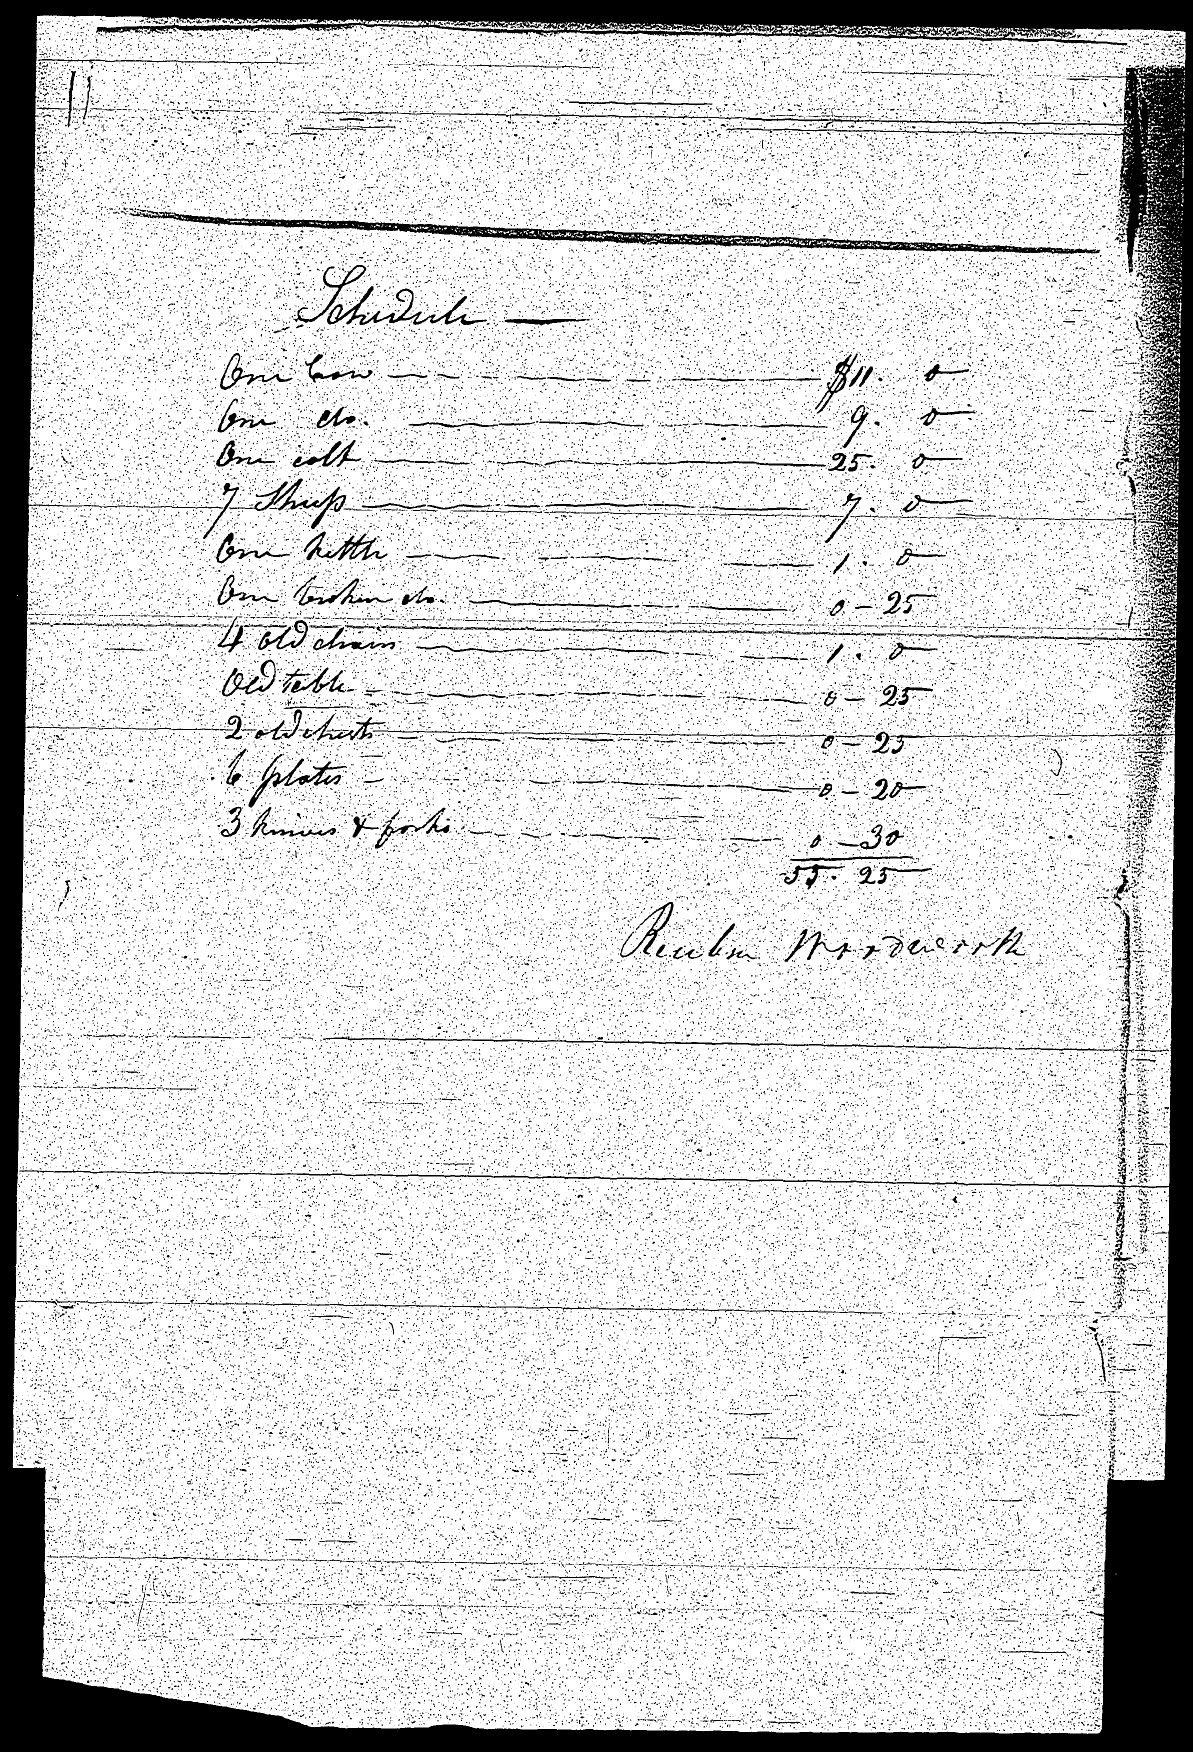 Schedule —
One Cow — — — — $11. 0
One do. — — — 9. 0
One colt — — — 25. 0
7 Sheep — — — 7. 0
One kettle — — — 1. 0
One broken do. — — — 0 - 25
4 old chairs — — — 1. 0
Old table — — — 0 - 25
2 old chests — — — 0 - 25
6 plates — — — 0 - 20
3 knives & forks — — — 0 - 30
55. 25
Reuben Woodworth